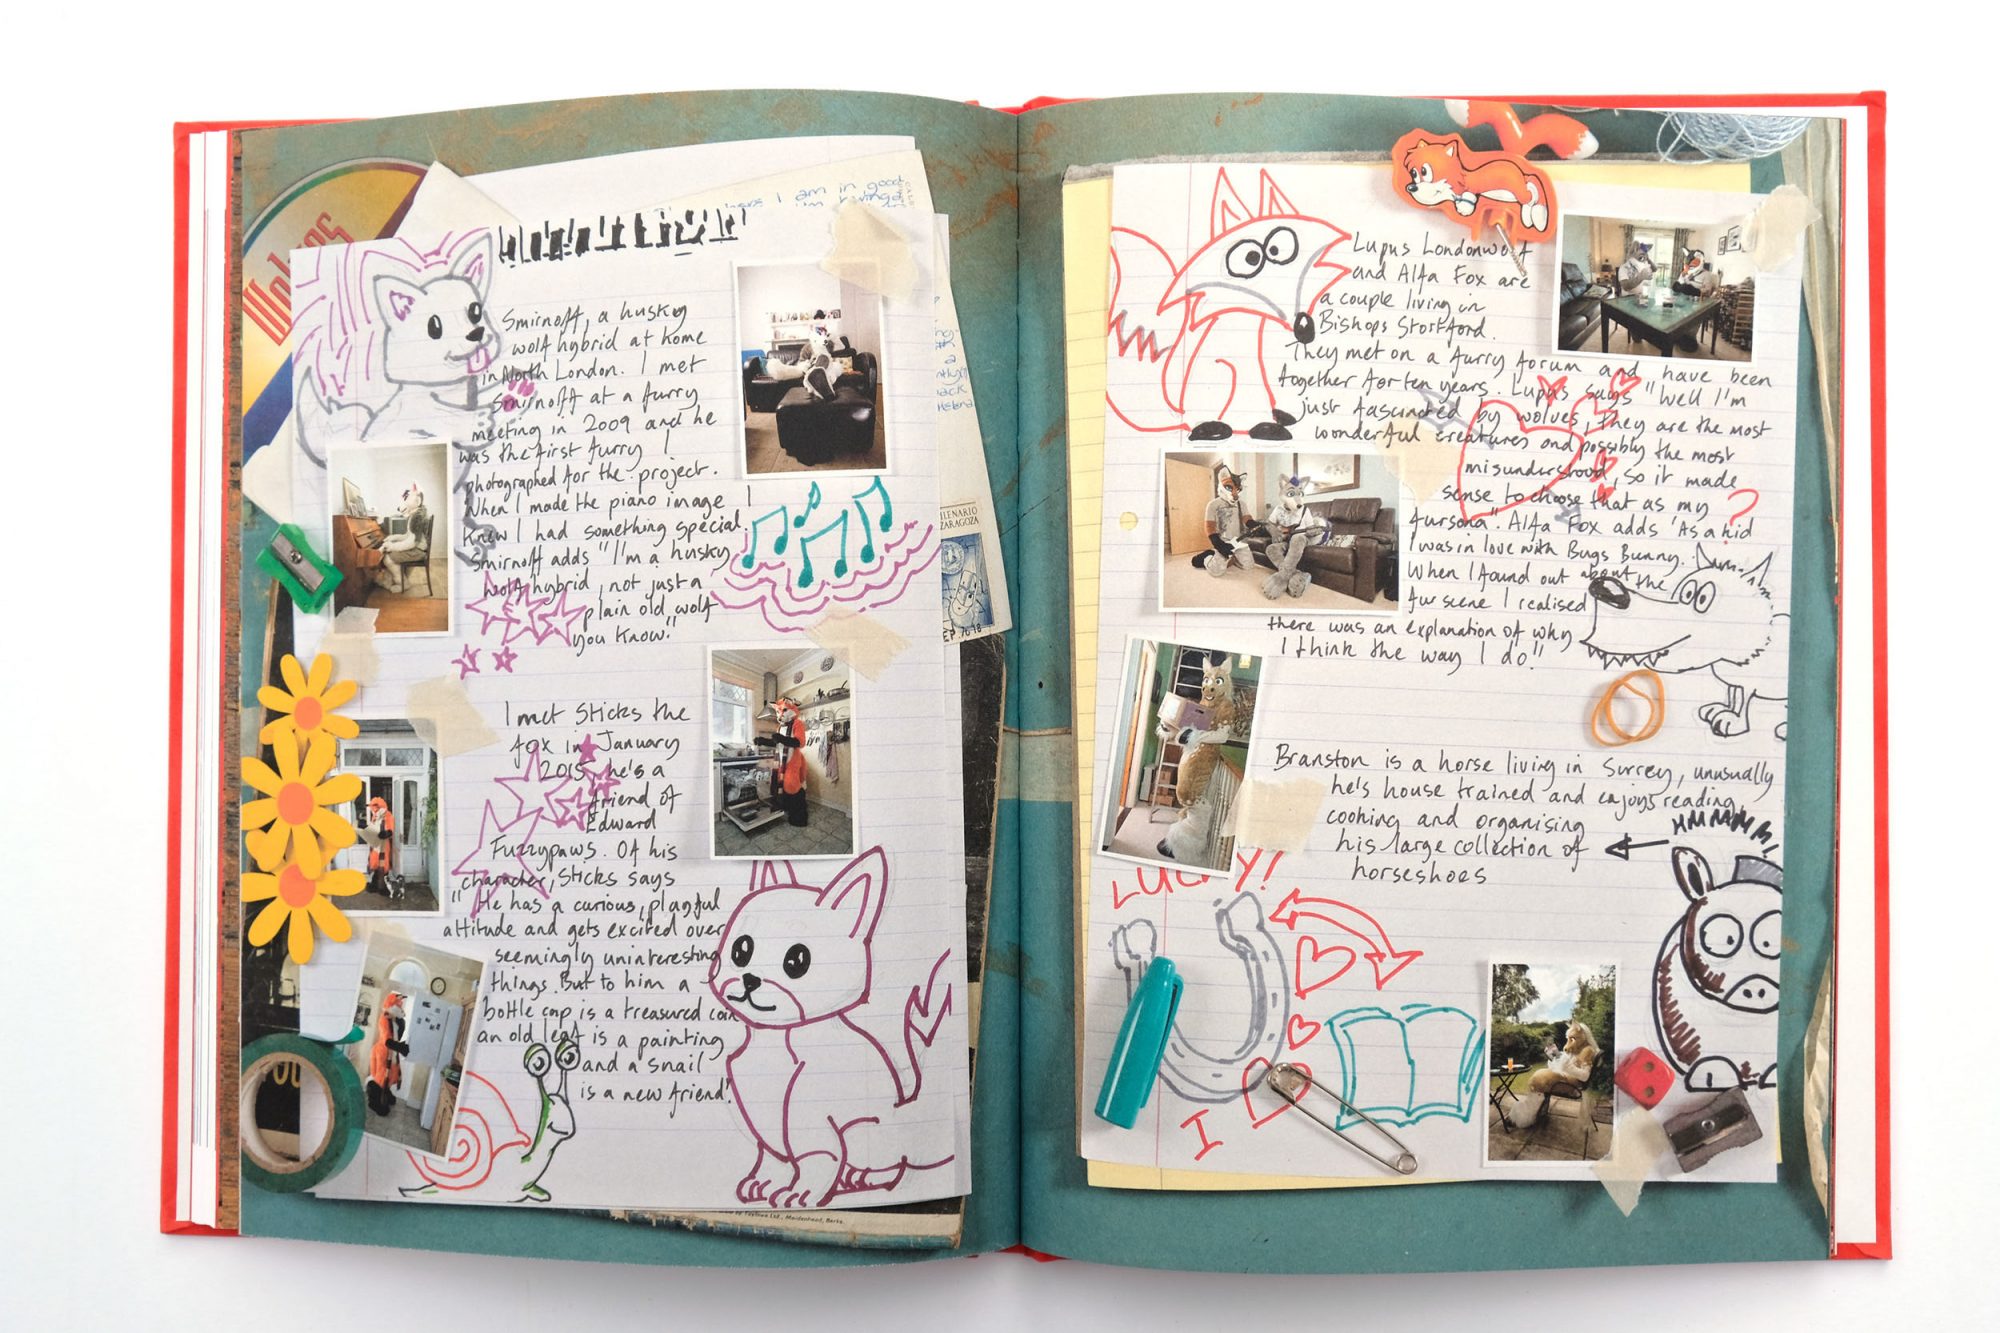 Wolves
I am in good
Smirnoff, a husky
wolf hybrid at home
in North London. I met
Smirnoff at a furry
meeting in 2009 and he
was the first furry I
photographed for the project.
When I made the piano image I
knew I had something special.
Smirnoff adds "I'm a husky
wolf hybrid, not just a
plain old wolf
you know."
MILENARIO
ZARAGOZA
I met Sticks the
fox in January
2015, he's a
friend of
Edward
Fuzzypaws. Of his
character, Sticks says
"He has a curious, playful
attitude and gets excited over
seemingly uninteresting
things. But to him a
bottle cap is a treasured coin
an old leaf is a painting
and a snail
is a new friend."
Maidenhead, Berks.
Lupus Londonwolf
and Alfa Fox are
a couple living in
Bishops Stortford.
They met on a furry forum and have been
together for ten years. Lupus says "Well I'm
just fascinated by wolves, they are the most
wonderful creatures and possibly the most
misunderstood, so it made
sense to choose that as my
fursona". Alfa Fox adds 'As a kid
I was in love with Bugs Bunny.
When I found out about the
fur scene I realised
there was an explanation of why
I think the way I do."
?
Branston is a horse living in Surrey, unusually
he's house trained and enjoys reading,
cooking and organising
his large collection of
horseshoes
HMMMMM!
LUCKY!
I